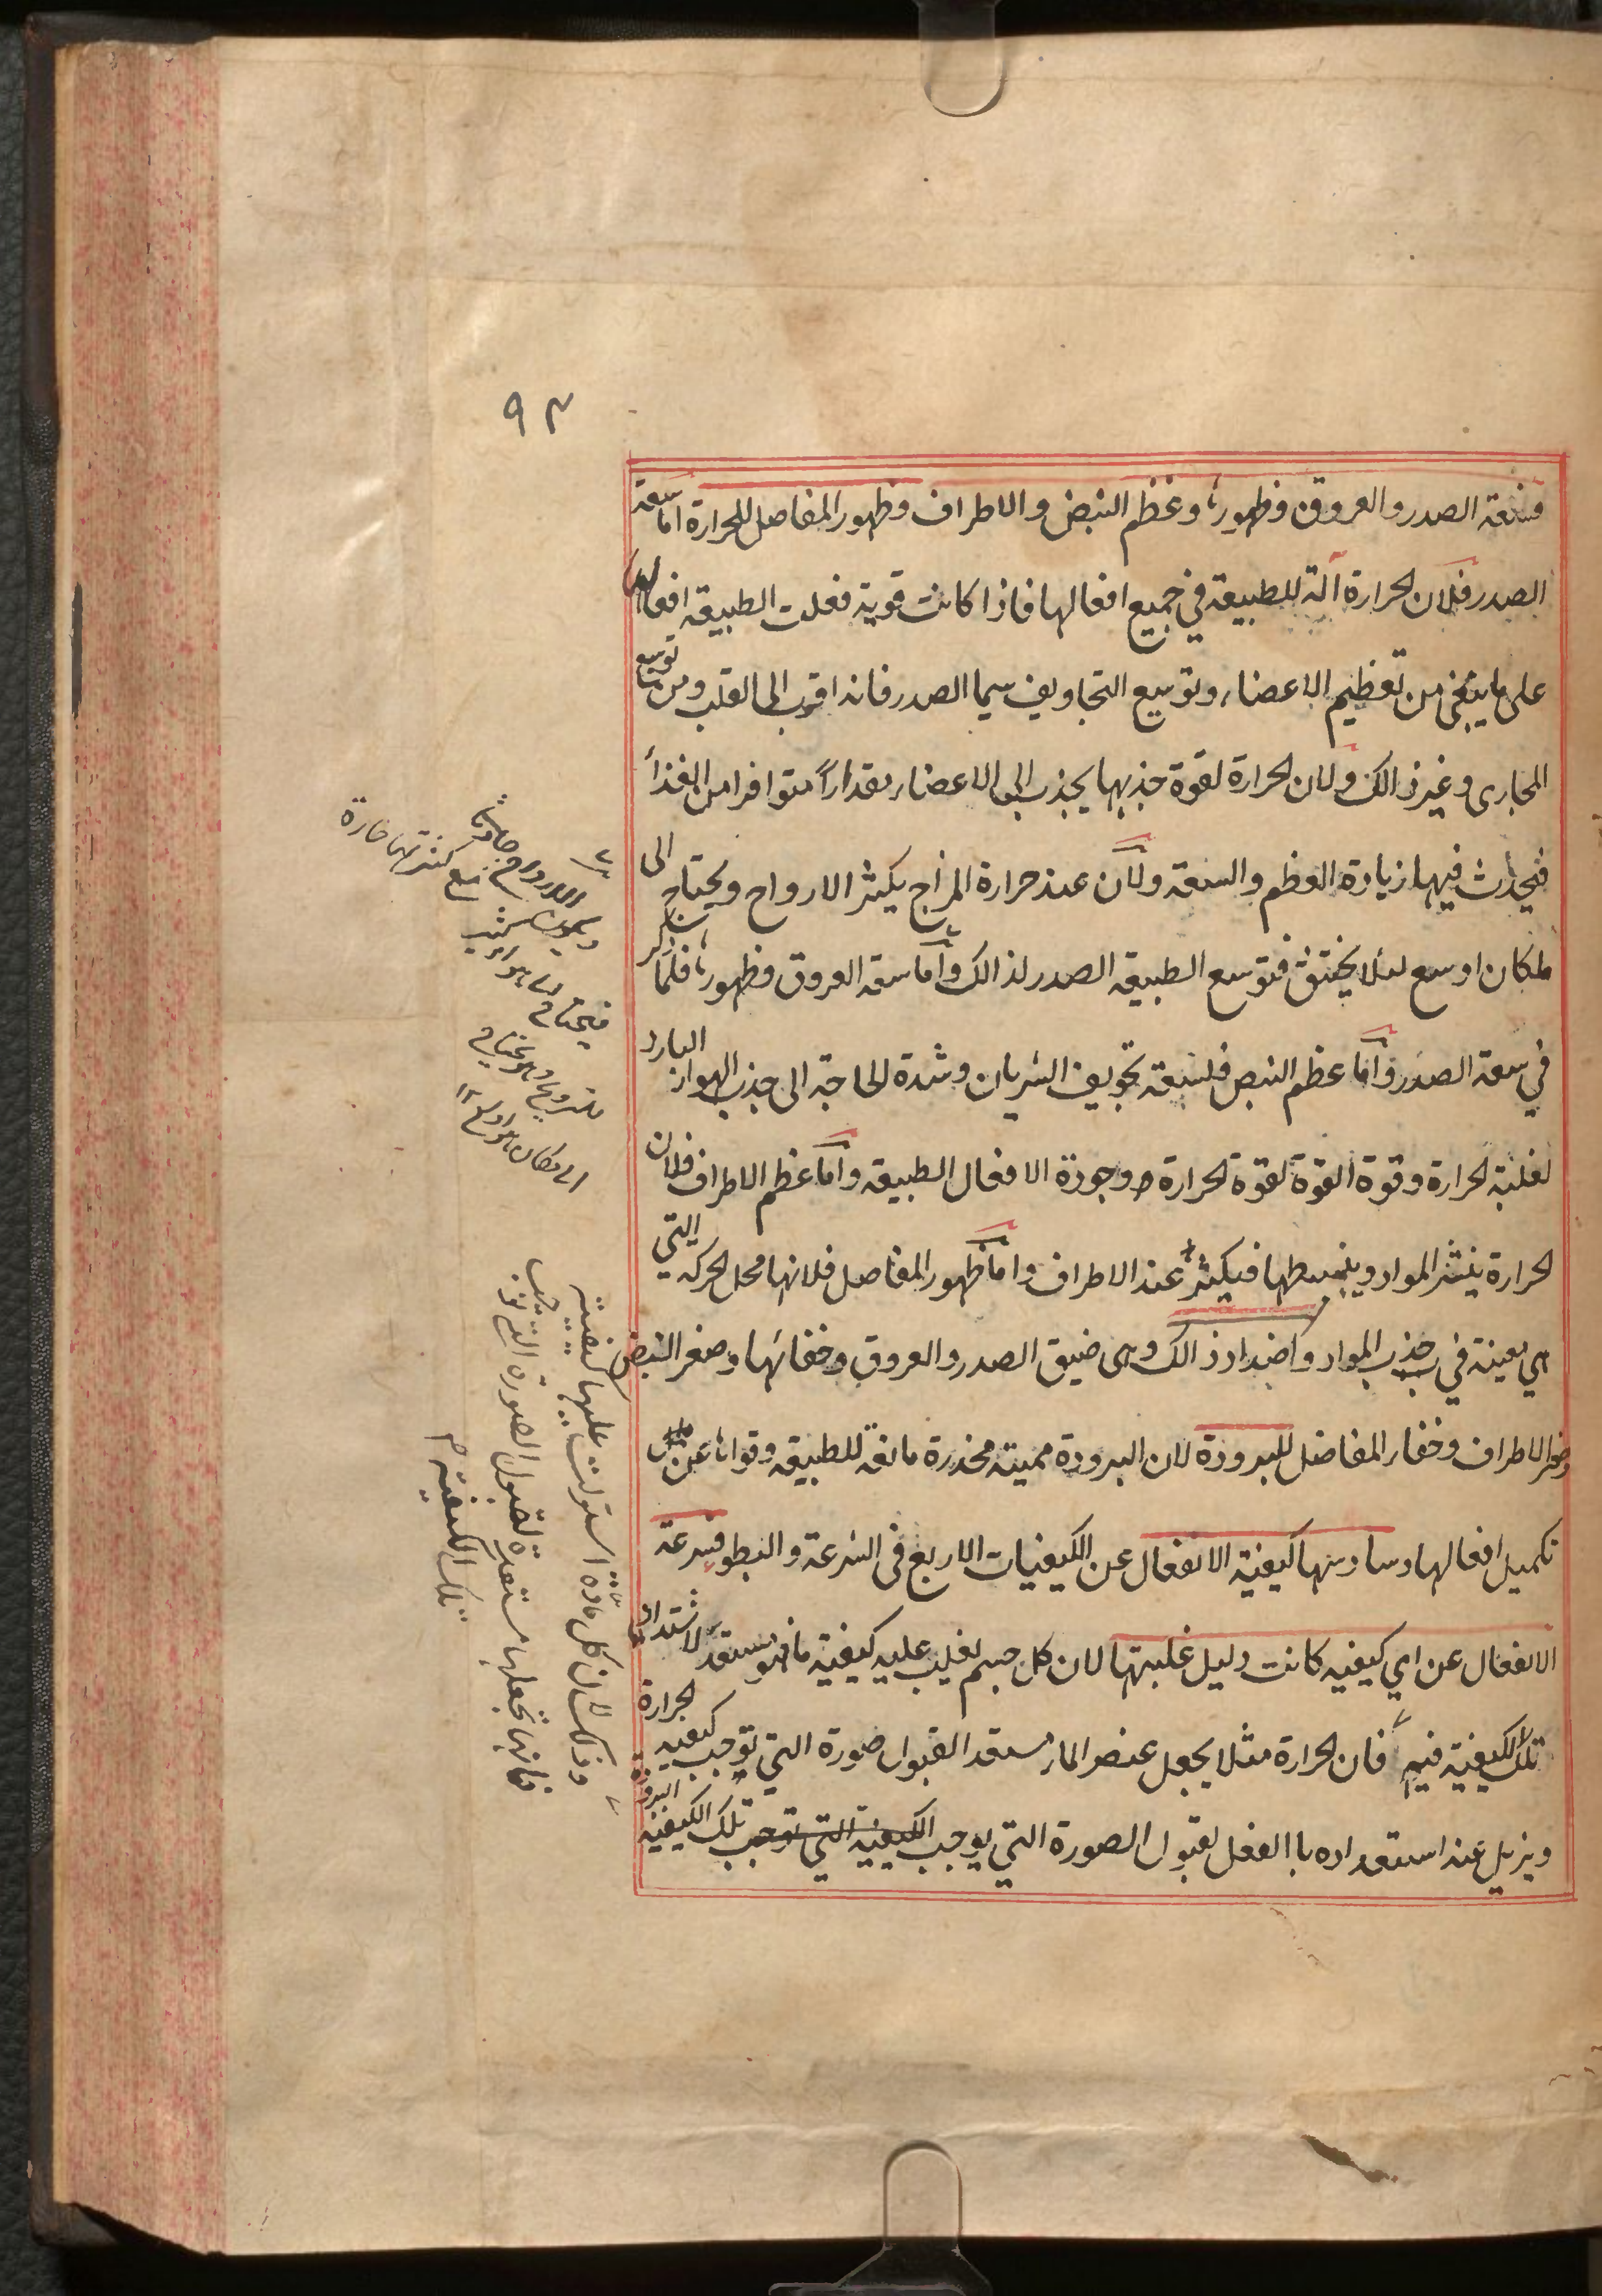 ٩٣
فسعة الصدر والعروق وظهورها وعظم النبض والاطراف وظهور المفاصل للحرارة اما سعة
الصدر فلان الحرارة آلة للطبيعة في جميع افعالها فاذا كانت قوية فعلت الطبيعة افعالها
على ما ينبغى من تعظيم الاعضاء وتوسيع التجاويف سيما الصدر فانه اقرب الى القلب ومن توسيع
المجارى وغير ذالك ولان الحرارة لقوة جذبها يجذب الى الاعضاء مقداراً متوافرا من الغذأ
فيحدث فيها زيادة العظم والسعة ولان عند حرارة المزاج يكثر الارواح ويحتاج الى
مكان اوسع لئلا يختنق فتوسع الطبيعة الصدر لذالك واما سعة العروق وظهورها فلما ذكر
في سعة الصدر واما عظم النبض فلسعة تجويف الشريان وشدة الحاجة الى جذب الهواء البارد
لغلبة الحرارة وقوة القوة لقوة الحرارة وجودة الافعال الطبيعة واما عظم الاطراف فلان
الحرارة ينشر المواد ويبسطها فيكثر عند الاطراف واما ظهور المفاصل فلانها محل الحركة التي
هي معينة في جذب المواد واضداد ذالك وهى ضيق الصدر والعروق وخفائها وصغر النبض
وصغر الاطراف وخفاء المفاصل للبرودة لان البرودة مميتة مخدرة مانعة للطبيعة وقواها عن
تكميل افعالها وسادسها كيفية الانفعال عن الكيفيات الاربع فى السرعة والبطو فسرعة
الانفعال عن اي كيفيه كانت دليل غلبتها لان كل جسم يغلب عليه كيفية ما فهو مستعد لاشتداد
تلك الكيفية فيه فان الحرارة مثلا يجعل عنصر الماء مستعد القبول صورة التي توجب كيفية الحرارة
ويزيل عنه استعداده باالفعل لقبول الصورة التي يوجب الكيفية التي توجب تلك الكيفية البرودة
مع كثرتها حارة
فيحتاج الى هواء
وذلك لان كل مادة استولت عليها كيفية
فانها تجعلها مستعدة لقبول الصورة التي توجب
تلك الكيفية م